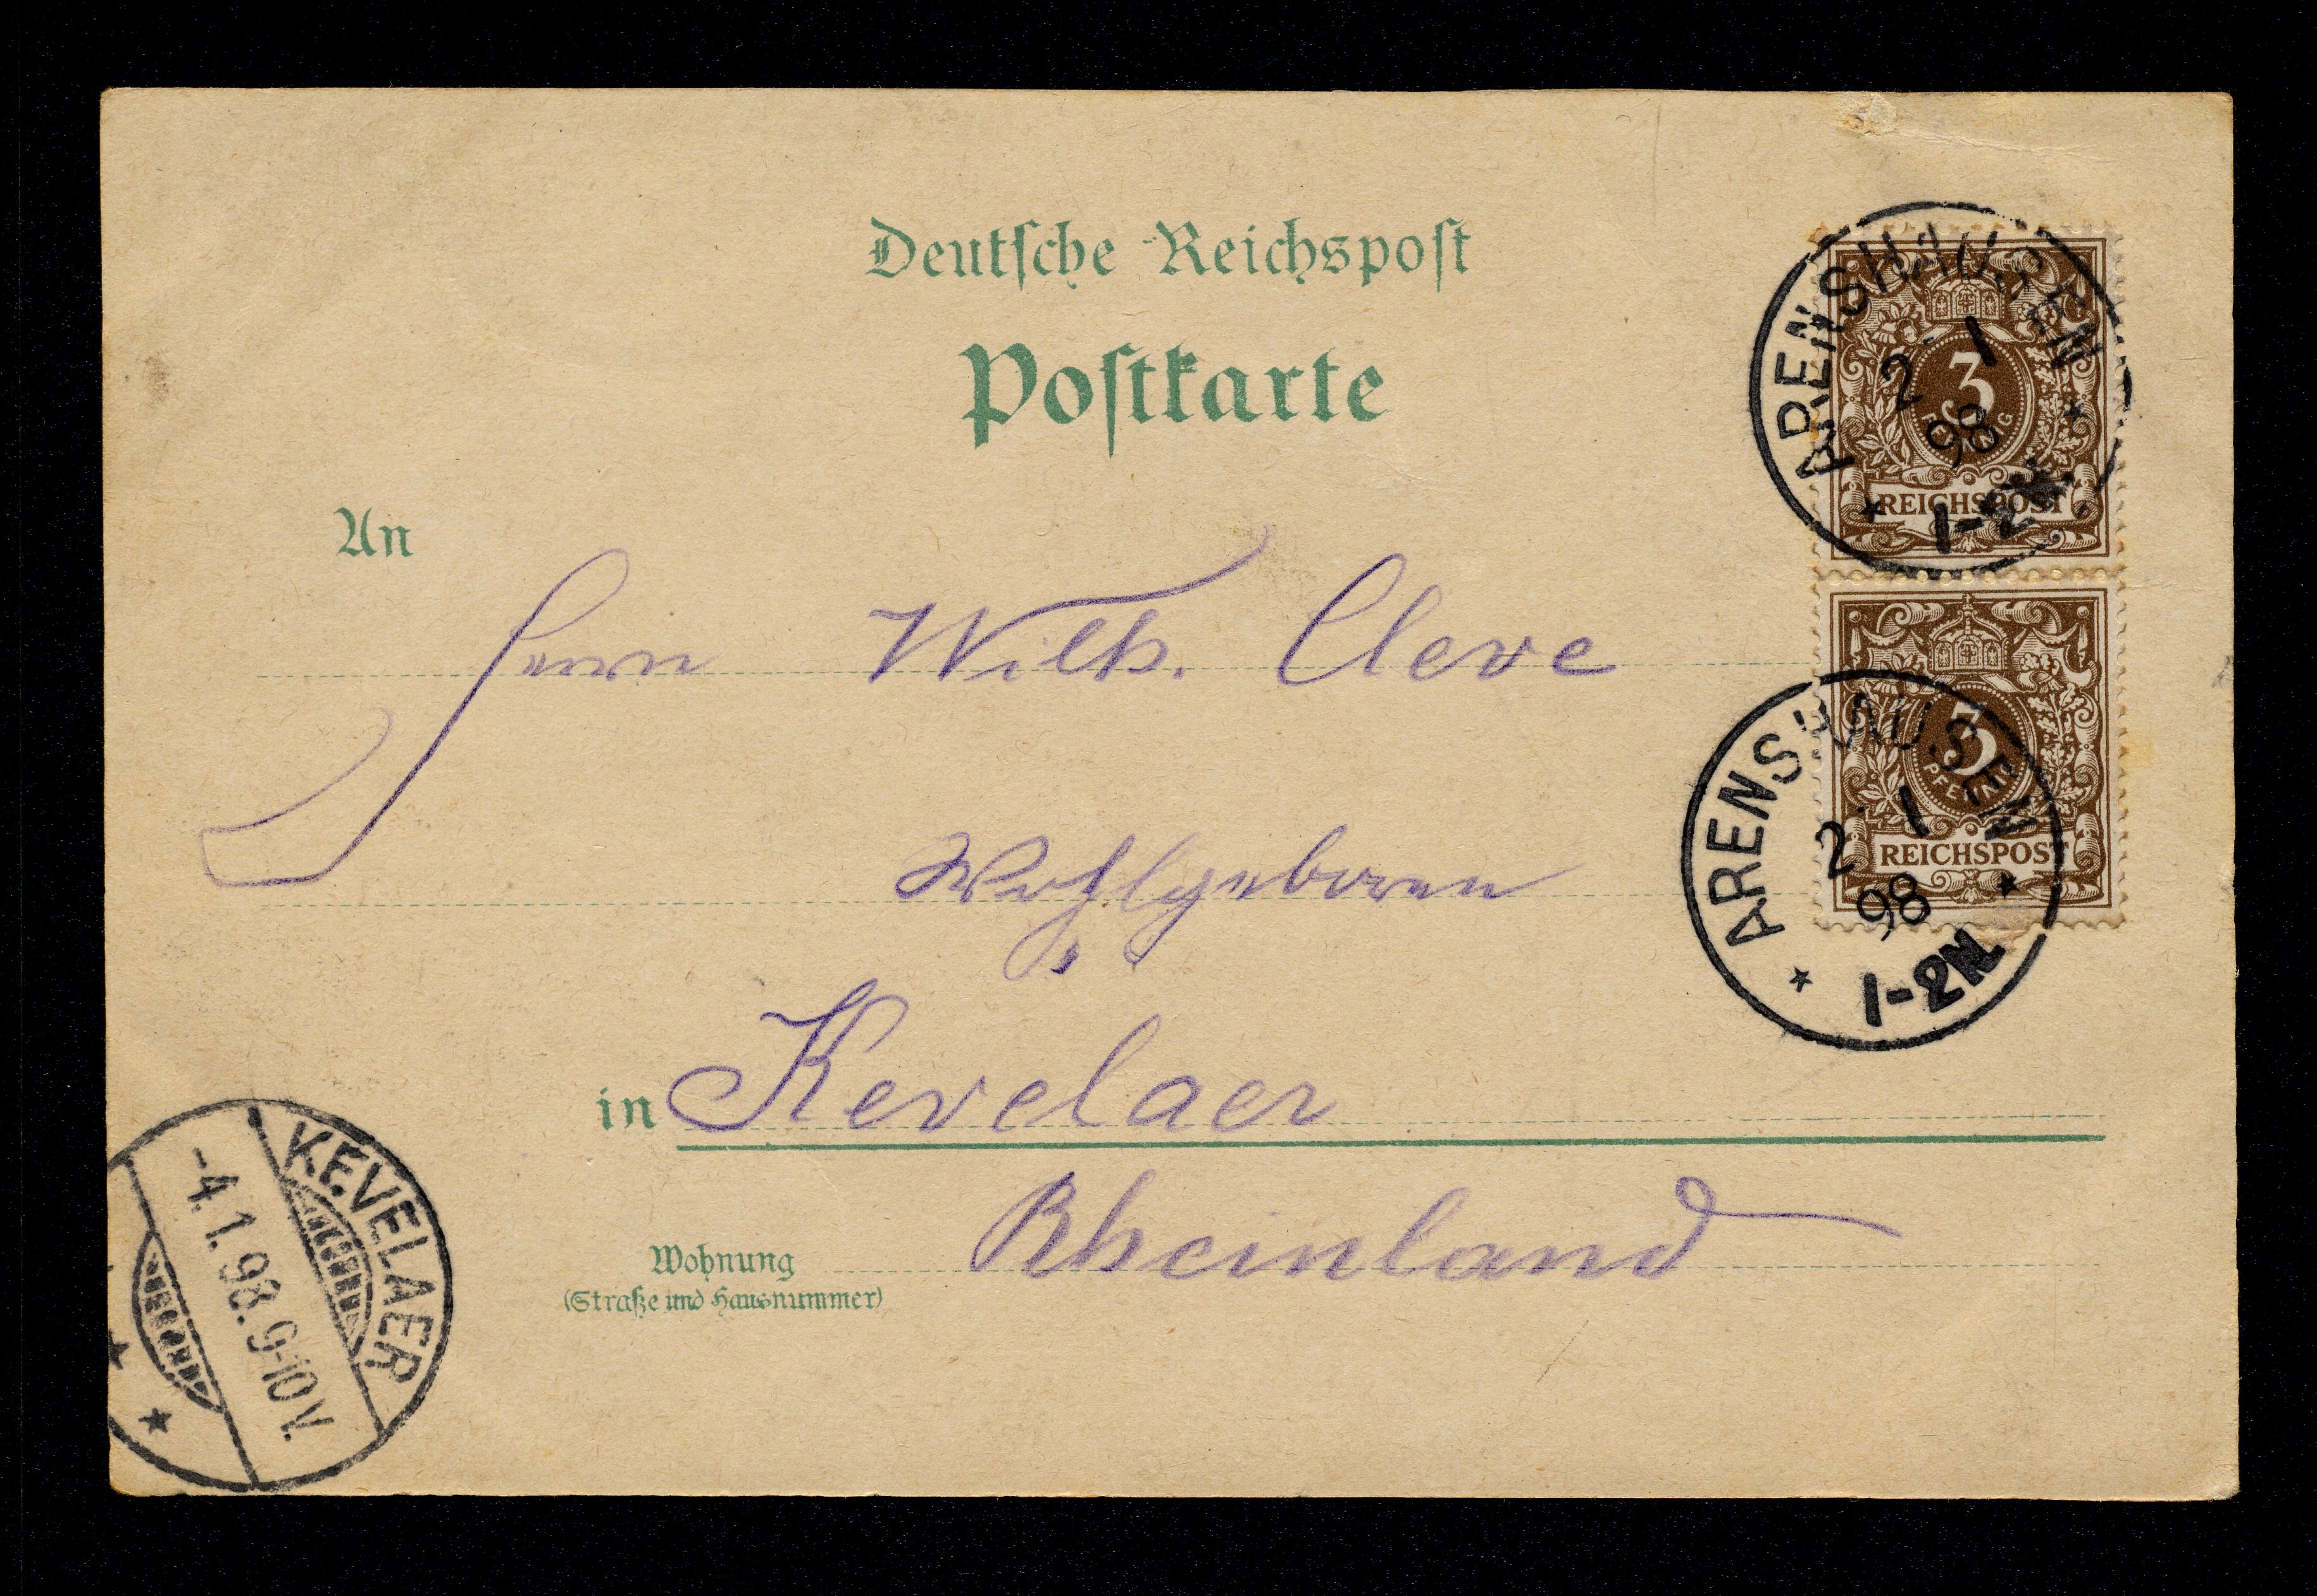 Deutsche Reichspost
Postkarte
ARENSHAUSEN
2 1
98
1-2N
3
PFENNIG
REICHSPOST
An
Herrn Wilh. Cleve
3
PFENNIG
REICHSPOST
ARENSHAUSEN
2 1
98
1-2N
Wohlgeboren
in Kevelaer
Rheinland
Wohnung
(Straße und Hausnummer)
KEVELAER
-4.1.98.9-10V.